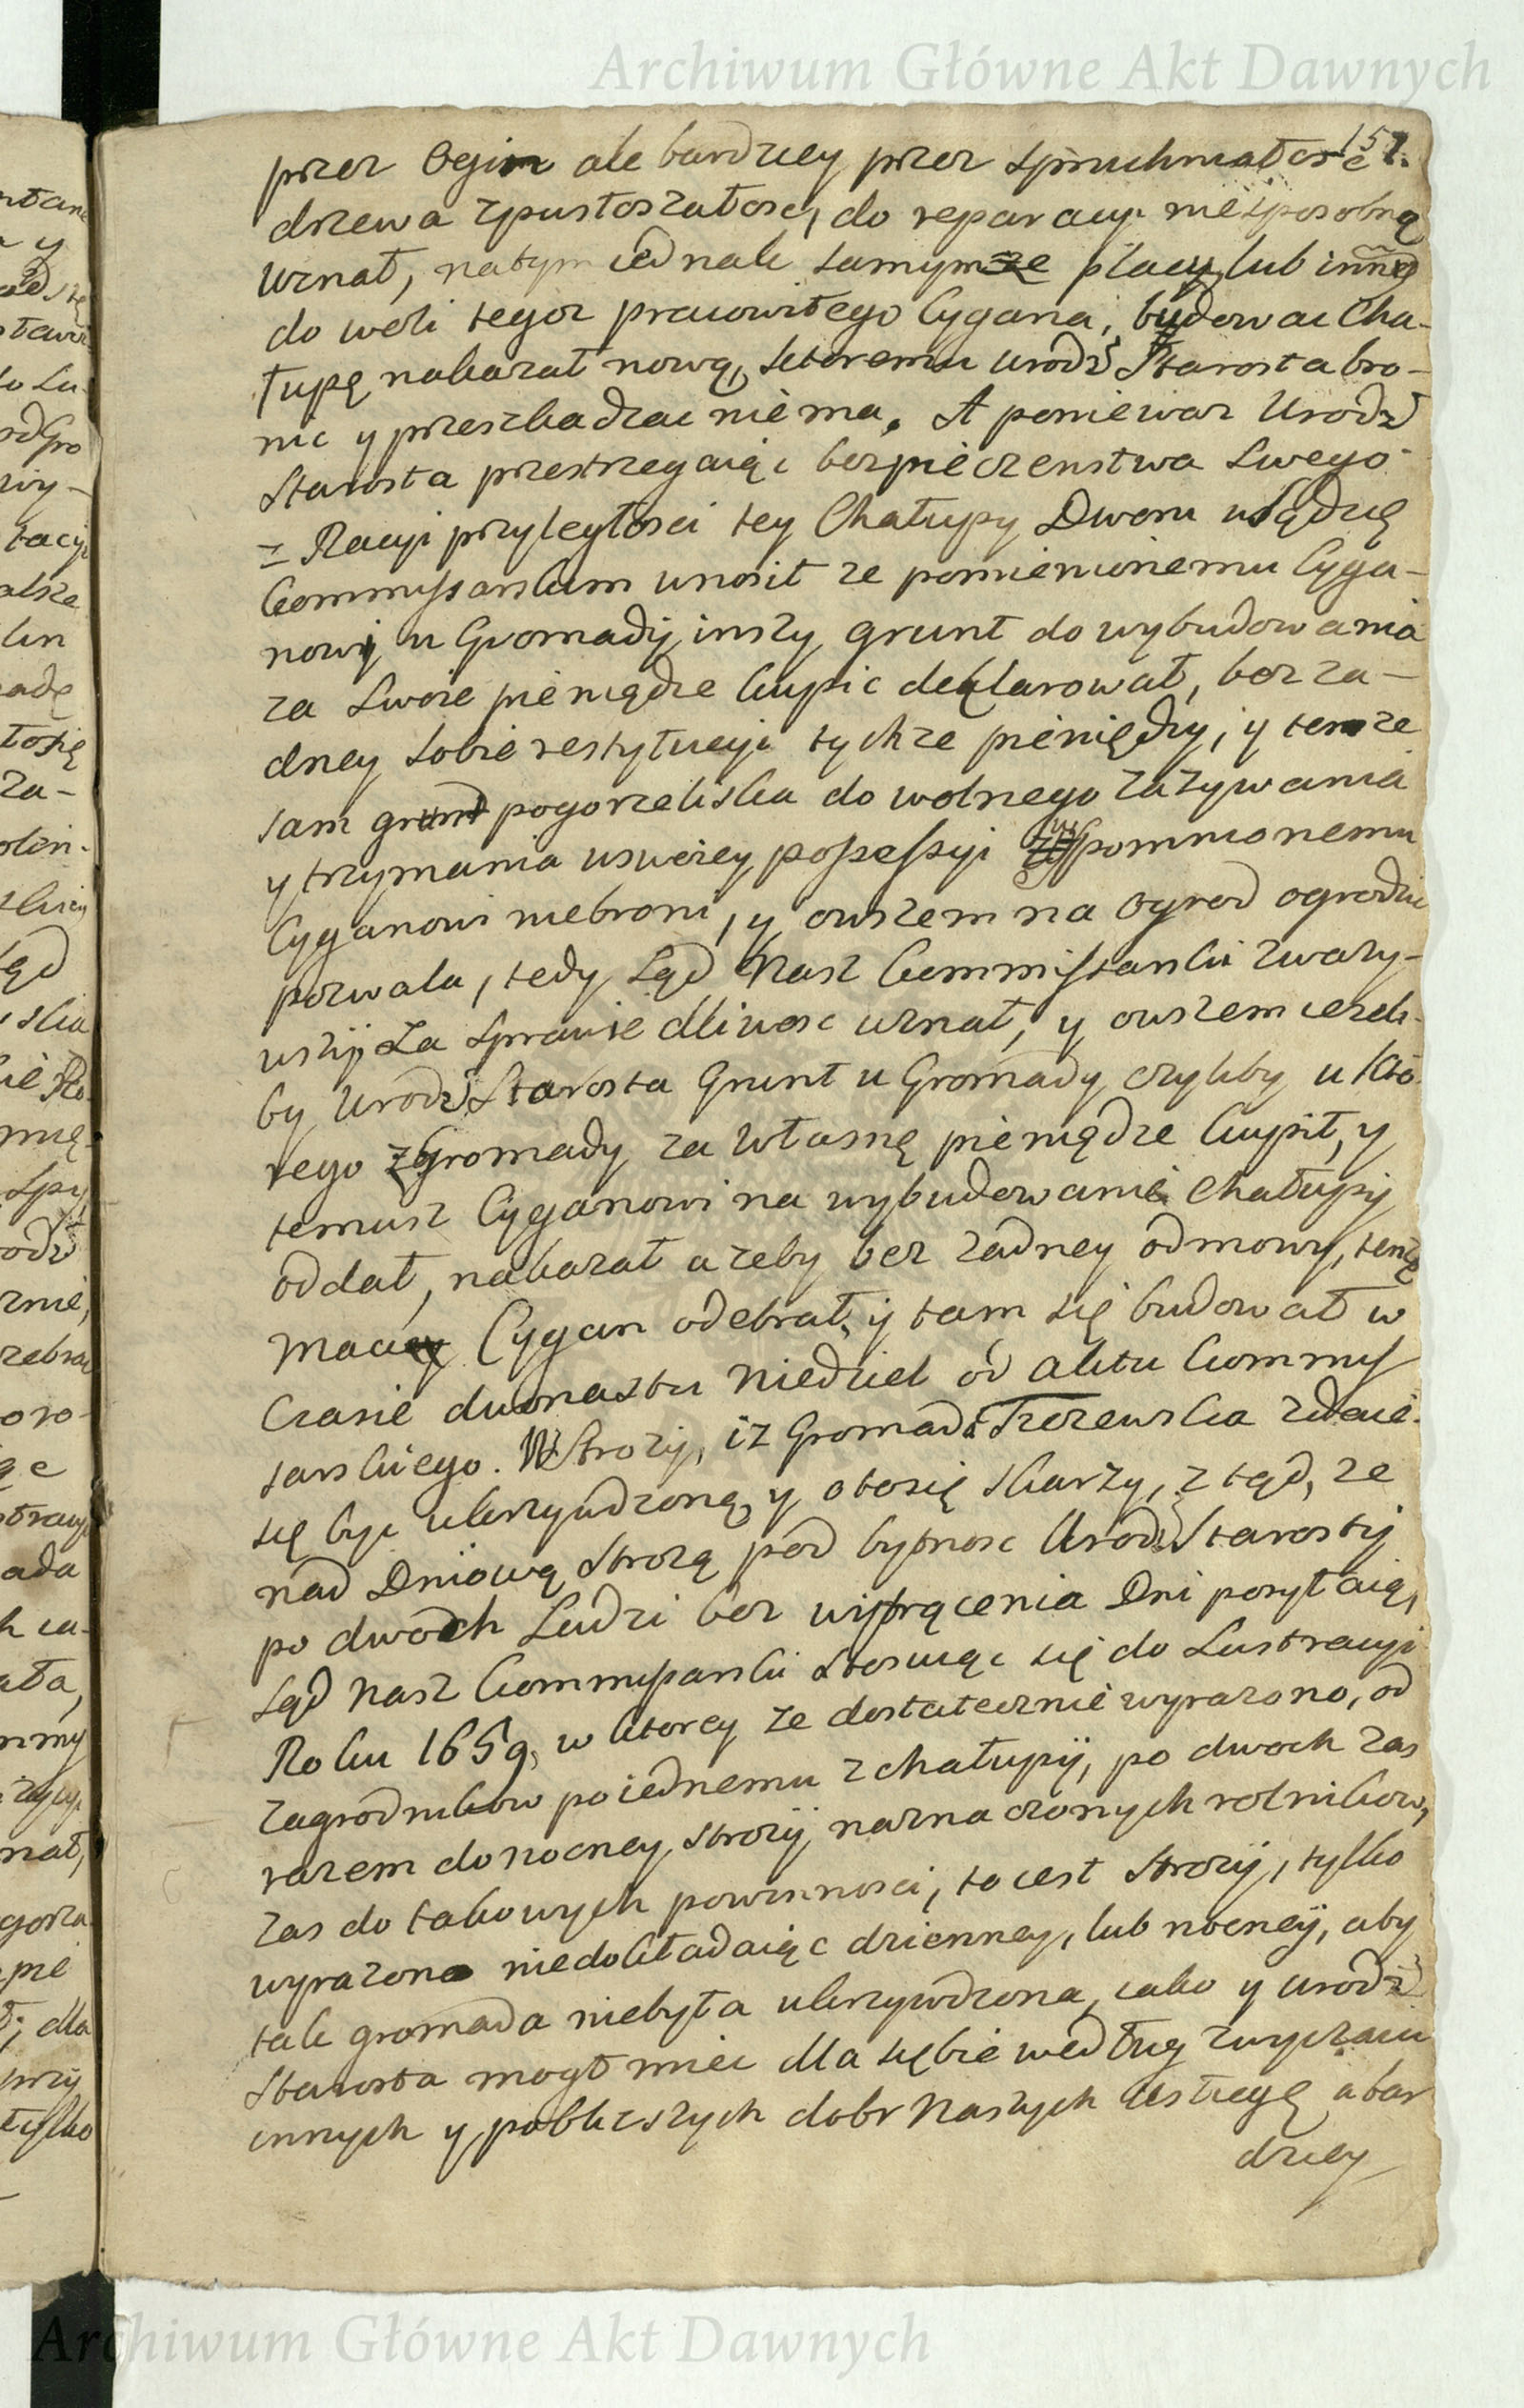 Archiwum Główne Akt Dawnych
157.
przez Ogien ale bardziey przez spruchniałosc
drzewa zpustoszałosc, do reparacyi niesposobną
uznał, natym iednak samymze placu, lub inny
do woli tegoz pracowitego Cygana, budowac Cha-
łupę nakazał nową, ktoremu Urodz Starosta bro-
nic y przeszkadzac niema. A poniewaz Urodz
Starosta przestrzegaiąc bezpieczenstwa swego
z Racyi przyległosci tey Chałupy Dworu u Sądzię
Commissarskim unosił ze pomienionemu Cyga-
nowi u Gromady inszy grunt do wybudowania
za swoie pieniądze kupic deklarował, bez za-
dney sobie restytucyi tychze pieniędzy, y tenze
sam grunt pogorzeliska do wolnego zazywania
y trzymania wswoiey possessyi wspomnionemu
Cyganowi niebroni, y owszem na Ogrod ogrodzic
pozwala, tedy Sąd Nasz Commissarski zwazy-
wszy za sprawiedliwosc uznał, y owszem iezeli-
by Urodz Starosta Grunt u Gromady czyliby u kto-
rego z Gromady za własnę pieniądze kupił, y
temusz Cyganowi na wybudowanie Chałupy
oddał, nakazał azeby bez zadney odmowy, tenze
Maciey Cygan odebrał, y tam się budował w
Czasie dwonastu Niedziel od aktu Commis-
sarskiego. W Strozy, iz Gromada Trzezewska zdaie
się byc ukrzywdzoną, y otosię skarzy, ztąd, ze
nad Dniową Strozą pod bytnosc Urodz Starosty
po dwoch Ludzi bez wytrącenia Dni posyłaią,
Sąd Nasz Commissarski stosuiąc się do Lustracyi
Roku 1659, w ktorey ze dostatecznie wyrazono, od
zagrodnikow poiednemu z chałupy, po dwoch zas
razem do nocney strozy naznaczonych rolnikow,
zas do takowych powinnosci, to iest Strozy, tylko
wyrazono niedokładaiąc dzienney, lub nocney, aby
tak gromada niebyła ukrzywdzona, iako y Urodz
Starosta mogł miec dla siebie według zwyczaiu
innych y poblizszych dobr Naszych Ustugę a bar
dziey
Archiwum Główne Akt Dawnych